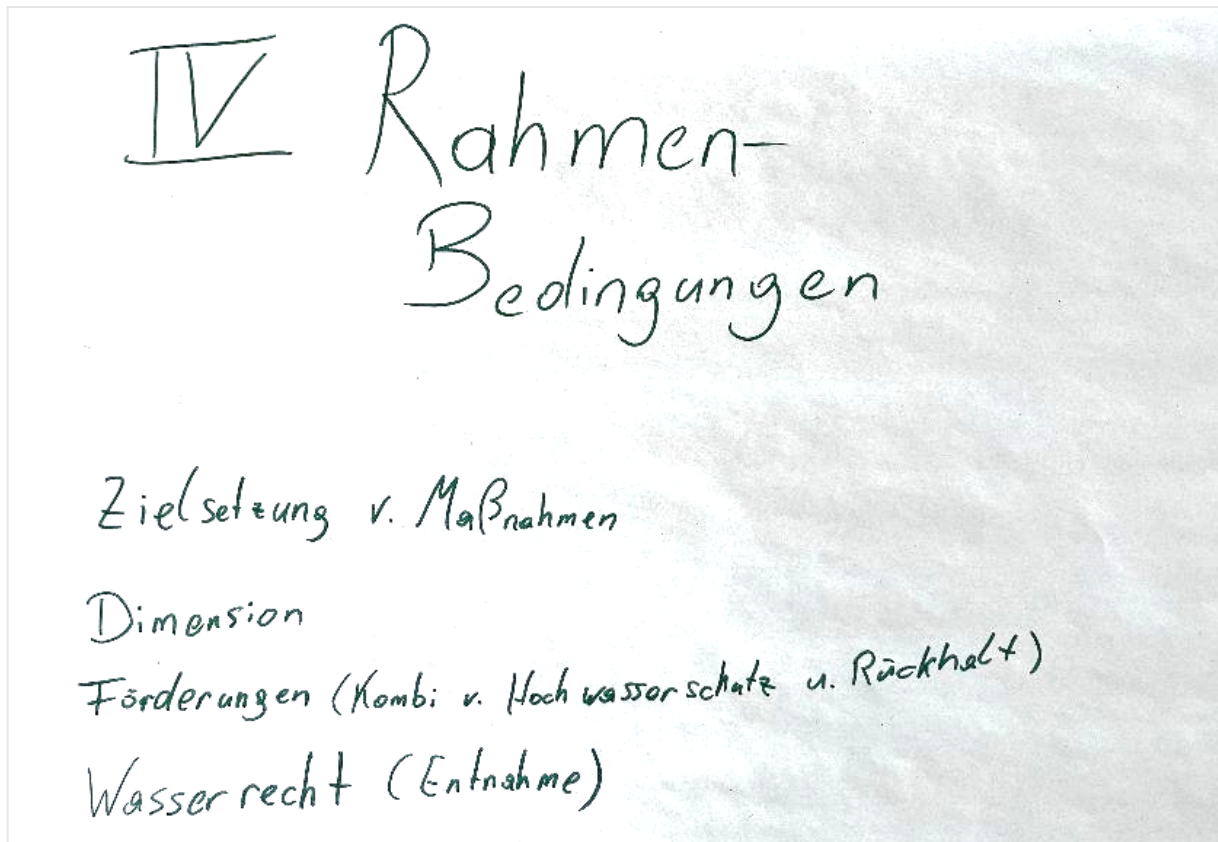 IV Rahmen-
Bedingungen
Zielsetzung v. Maßnahmen
Dimension
Förderungen (Kombi v. Hochwasserschutz u. Rückhalt)
Wasserrecht (Entnahme)